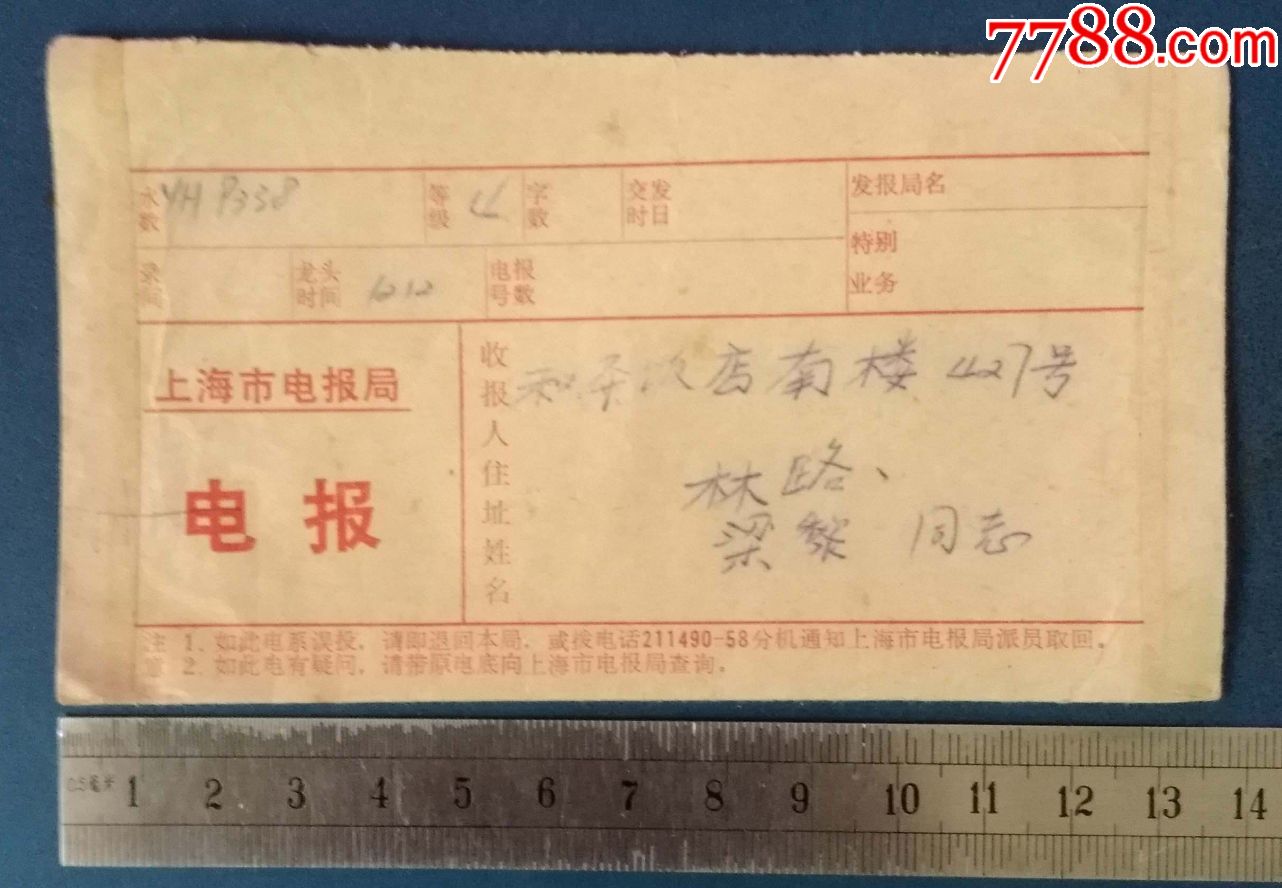 7788.com
水数 YH P338 等级 4 字数 交发时日 发报局名
特别业务
录间 龙头时间 1212 电报号数
上海市电报局
电报
收报人住址姓名
和平饭店南楼427号
林路、
梁黎 同志
注 1. 如此电系误投,请即退回本局,或拨电话211490-58分机通知上海市电报局派员取回。
意 2. 如此电有疑问,请带原电底向上海市电报局查询。
0.5毫米 1 2 3 4 5 6 7 8 9 10 11 12 13 14